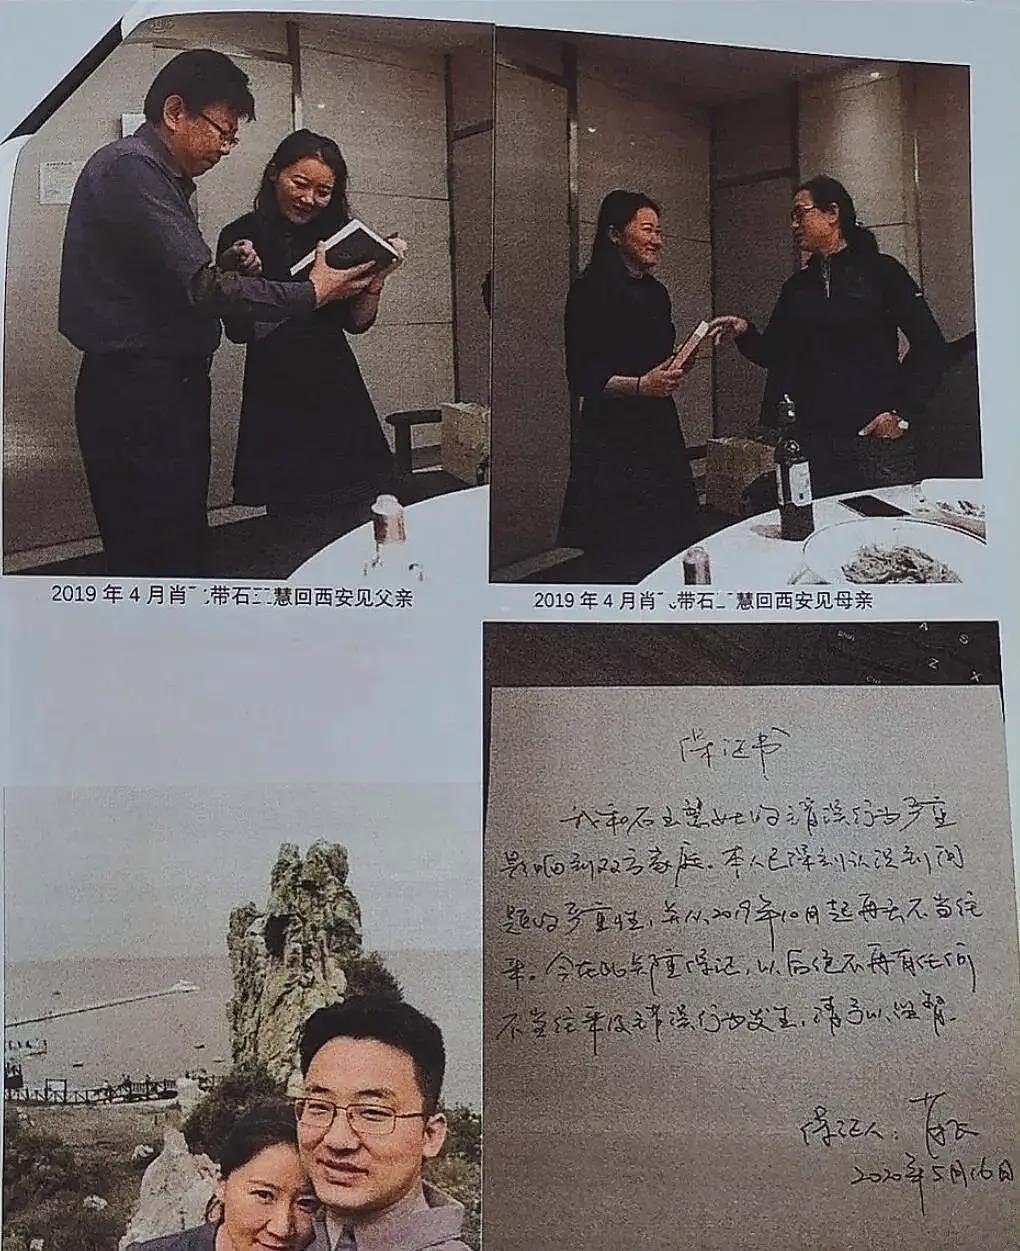 2019年4月肖 带石 慧回西安见父亲
2019年4月肖 带石 慧回西安见母亲
A S
Z X
保证书
我和石玉慧女士的错误行为严重
影响到双方家庭。本人已深刻认识到问
题的严重性，并从2019年10月起再无不当往
来。今在此郑重保证，以后绝不再有任何
不当往来及错误行为发生，请予以监督。
保证人：
2020年5月16日